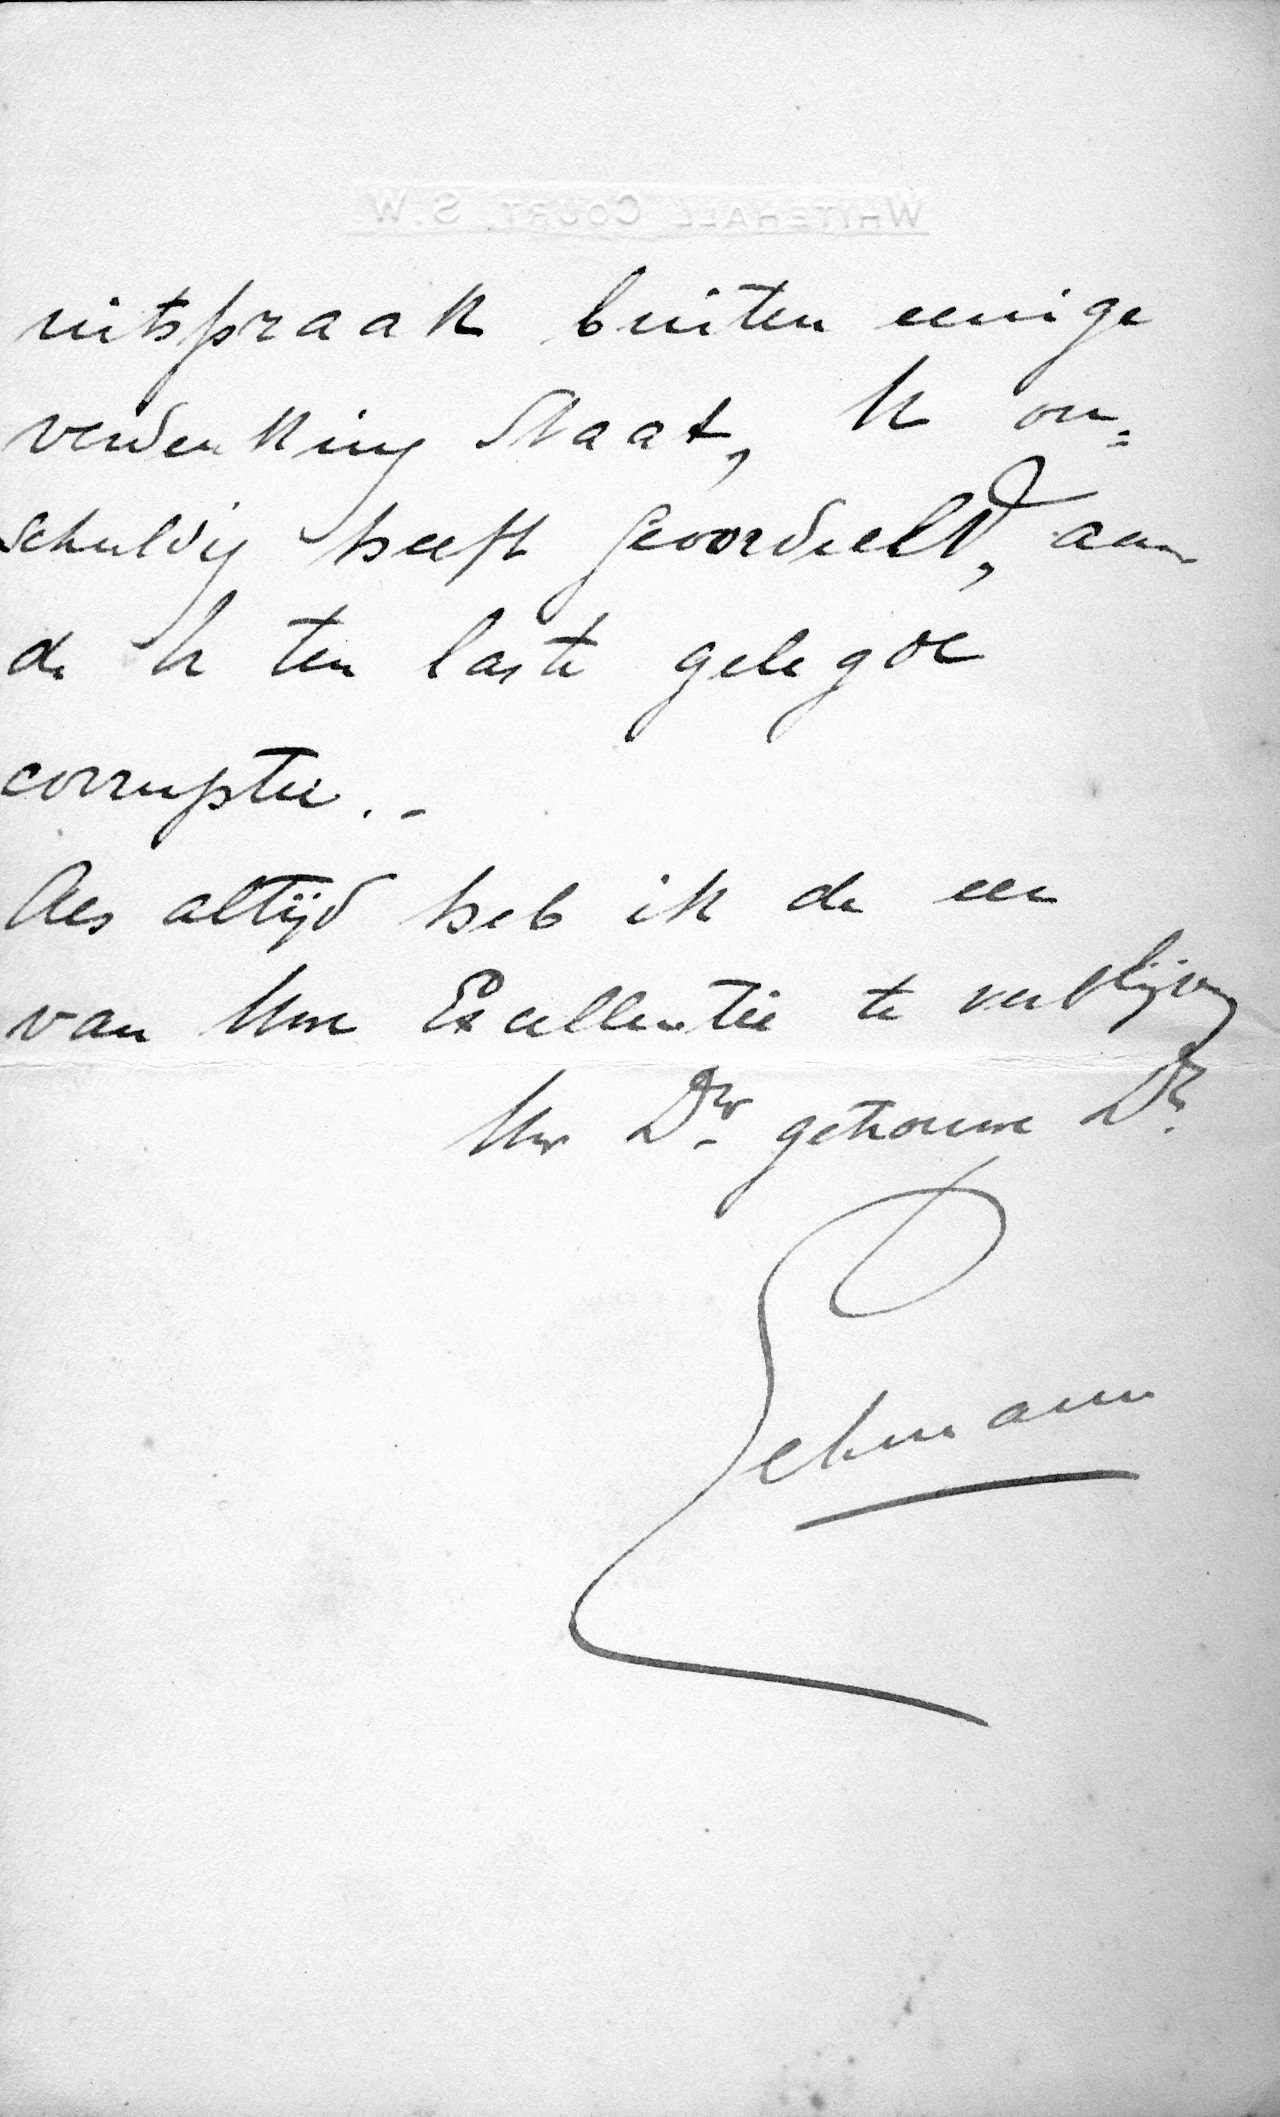 WHITEHALL COURT. S.W.
uitspraak buiten eenige
verdenking staat, h on=
schuldig heeft geoordeeld, aan
de h ten laste gelegde
corruptie. -
Als altijd heb ik de eer
van Uwe Excellentie te verblijven
Uw Dw. getrouwe Dr.
Lehmann